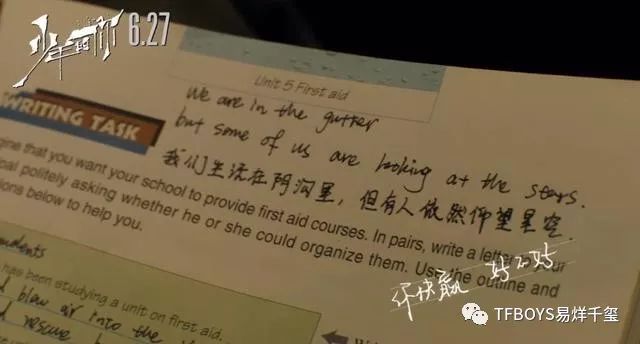 少年的你 6.27
Unit 5 First aid
We are in the gutter
WRITING TASK
but some of us are looking at the stars.
我们生活在阴沟里，但有人依然仰望星空
gine that you want your school to provide first aid courses. In pairs, write a letter to your
pal politely asking whether he or she could organize them. Use the outline and
ions below to help you.
udents
has been studying a unit on first aid.
d blew air into the
d rescue
你快赢 好不好
TFBOYS易烊千玺